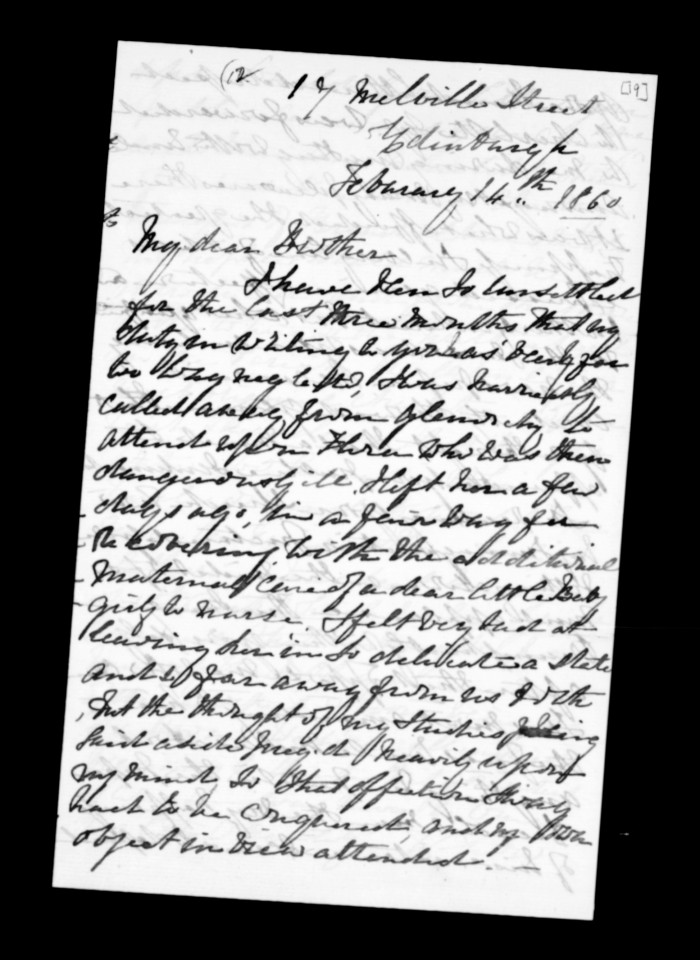 (12.
[19]
17 Melville Street
Edinburgh
Febuarary 14.th 1860
My dear Brother
I have been so unsettled
for the last three months that my
duty in writing to you has been far
too long neglected, I was hurriedly
called away from Glenorchy to
attend upon Flora who was then
dangerously ill. I left her a few
days ago, in a fair way for
recovering with the additional
maternal care of a dear little Baby
girl to nurse. I felt very bad at
leaving her in so delicate a state
and so far away from us both
, but the thought of my studies being
laid aside weighed heavily upon
my mind, so that affection
had to be conquered, and my own
object in view attended.